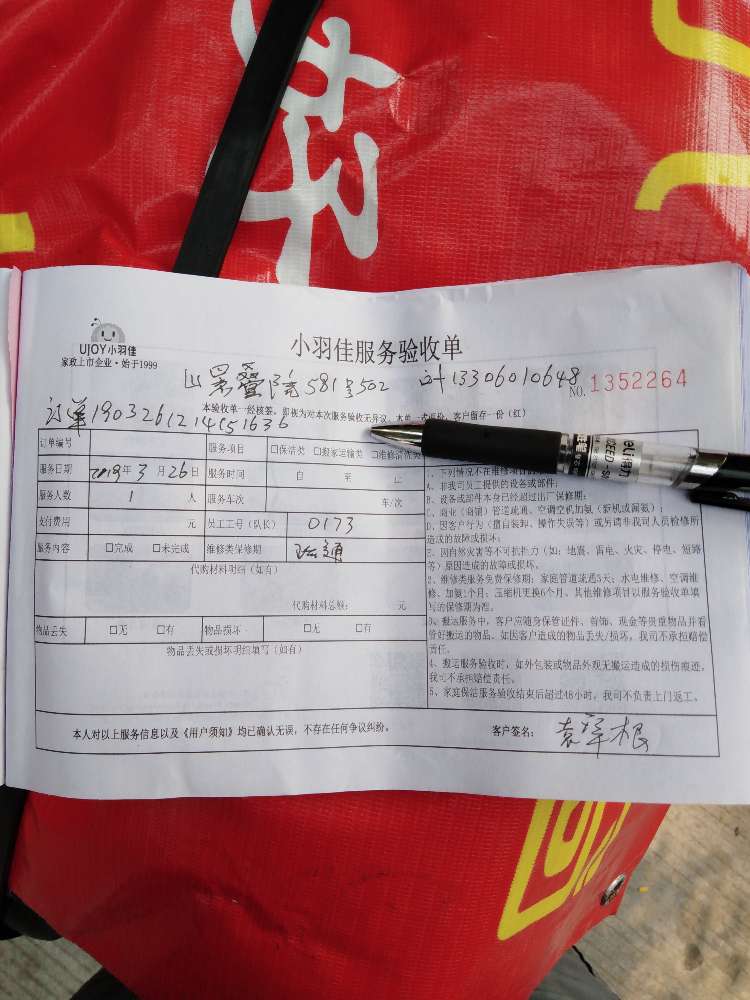 UJOY小羽佳
家政上市企业·始于1999
小羽佳服务验收单
山景叠院581号502 叶13306010648
NO.1352264
订单19032612145
本验收单一经核签，即视为对本次服务验收无异议，本单一式
客户留存一份（红）
订单编号 服务项目 □保洁类 □搬家运输类 □维修清洗类
服务日期 2019年3月26日 服务时间 自 至 止
服务人数 1 人 服务车次 车/次
支付费用 元 员工工号（队长） 0173
服务内容 □完成 □未完成 维修类保修期 通
代购材料明细（如有）
代购材料总额： 元
物品丢失 □无 □有 物品损坏 □无 □有
物品丢失或损坏明细填写（如有）
1、下列情况不在维修项目
A、非我司员工提供的设备或部件；
B、设备或部件本身已经超过出厂保修期；
C、商业（商铺）管道疏通、空调空机加氨（新机或漏氨）；
D、因客户行为（擅自装卸、操作失误等）或另请非我司人员检修所
造成的故障或损坏；
E、因自然灾害等不可抗拒力（如：地震、雷电、火灾、停电、短路
等）原因造成的故障或损坏。
2、维修类服务免费保修期：家庭管道疏通3天；水电维修、空调维
修、加氨1个月；压缩机更换6个月。其他维修项目以服务验收单填
写的保修期为准。
3、搬运服务中，客户应随身保管证件、首饰、现金等贵重物品并看
管好搬运的物品。如因客户造成的物品丢失/损坏，我司不承担赔偿
责任。
4、搬运服务验收时，如外包装或物品外观无搬运造成的损伤痕迹，
我司不承担赔偿责任。
5、家庭保洁服务验收结束后超过48小时，我司不负责上门返工。
本人对以上服务信息以及《用户须知》均已确认无误，不存在任何争议纠纷。 客户签名： 袁祥根
deli得力